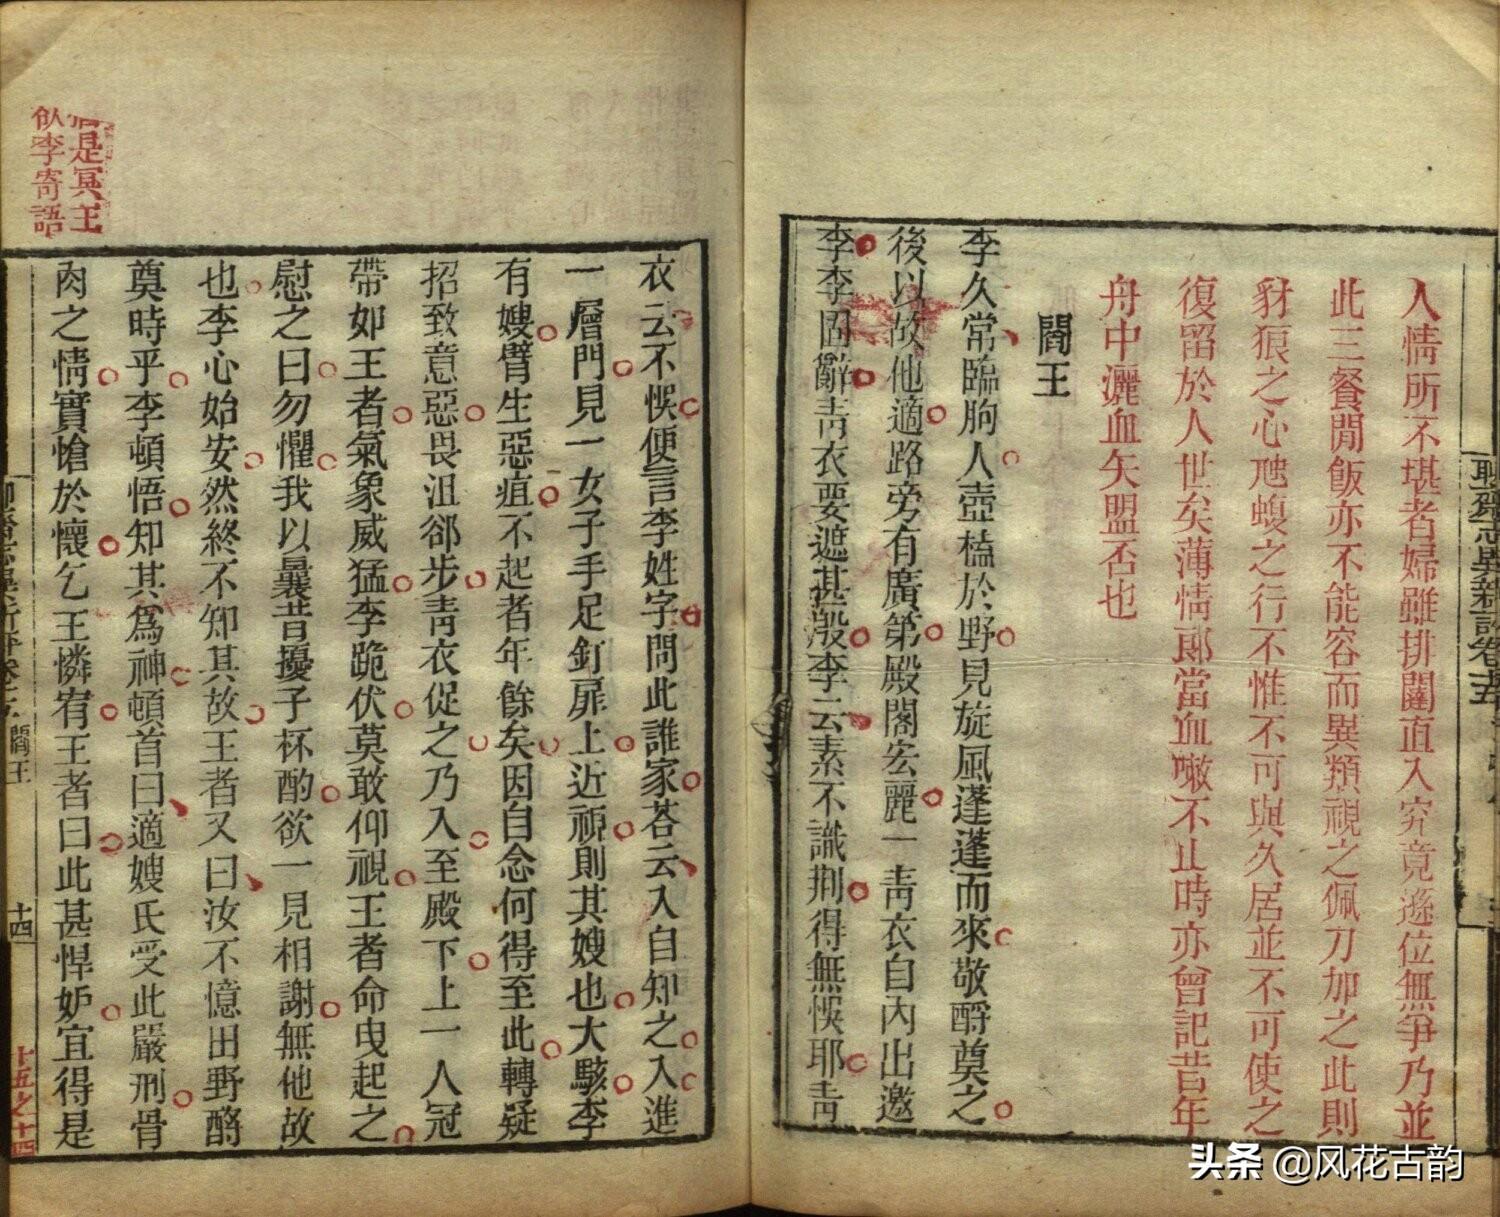 人情所不堪者婦雖排闥直入究竟遜位無爭乃並
此三餐閒飯亦不能容而異類視之佩刀加之此則
豺狼之心虺蝮之行不惟不可與久居並不可使之
復留於人世矣薄情郎當血嗽不止時亦曾記昔年
舟中灑血矢盟否也
閻王
李久常臨朐人壺榼於野見旋風蓬蓬而來敬酹奠之
後以故他適路旁有廣第殿閣宏麗一靑衣自內出邀
李李固辭靑衣要遮甚殷李云素不識荆得無悞耶靑
衣云不悞便言李姓字問此誰家荅云入自知之入進
一層門見一女子手足釘扉上近視則其嫂也大駭李
有嫂臂生惡疽不起者年餘矣因自念何得至此轉疑
招致意惡畏沮郤步靑衣促之乃入至殿下上一人冠
帶如王者氣象威猛李跪伏莫敢仰視王者命曳起之
慰之曰勿懼我以曩昔擾子杯酌欲一見相謝無他故
也李心始安然終不知其故王者又曰汝不憶田野酹
奠時乎李頓悟知其爲神頓首曰適嫂氏受此嚴刑骨
肉之情實愴於懷乞王憐宥王者曰此甚悍妒宜得是
是冥王
飲李寄語
聊齋志異新評卷十五
閻王
十四
十五之十四
头条 @风花古韵